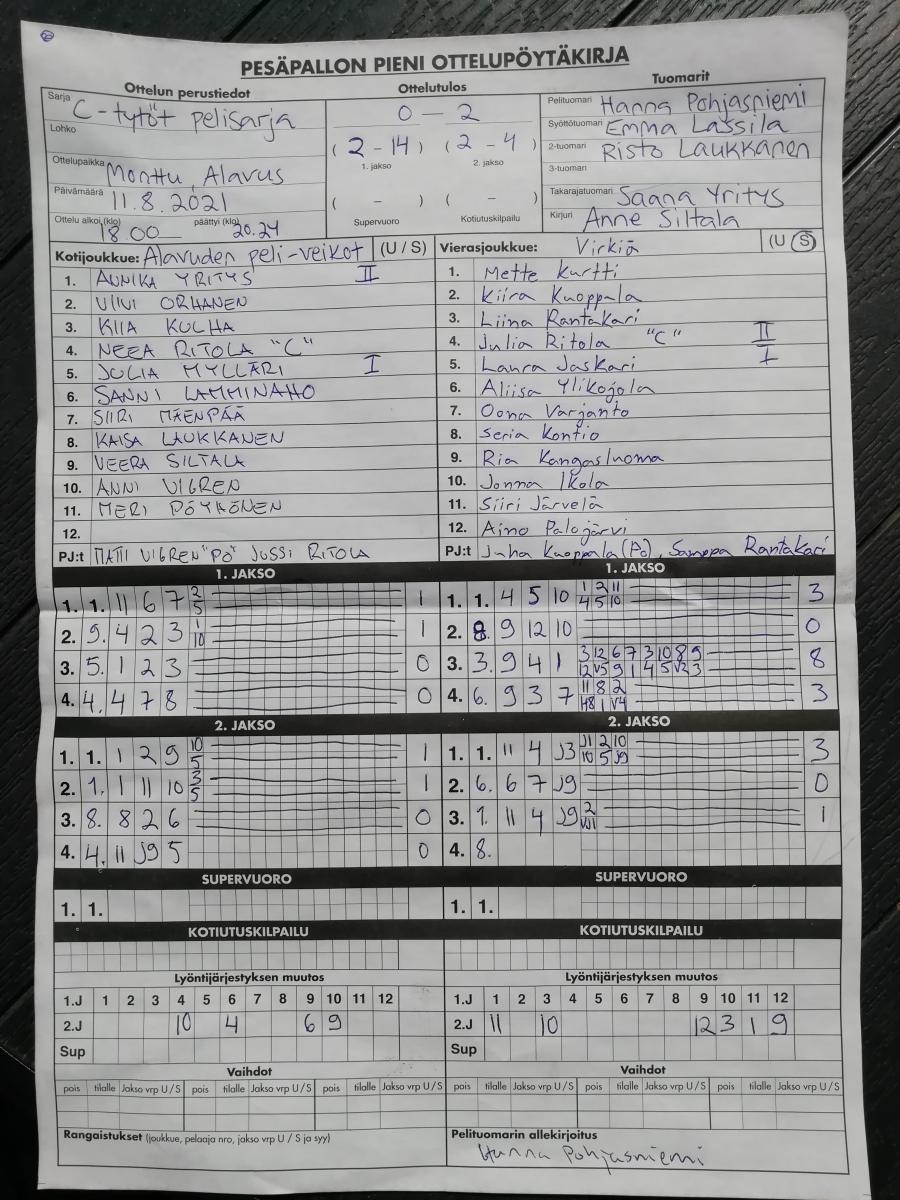 PESÄPALLON PIENI OTTELUPÖYTÄKIRJA
Ottelun perustiedot Ottelutulos Tuomarit
Sarja C-tytöt pelisarja
Lohko
Ottelupaikka Monttu, Alavus
Päivämäärä 11.8.2021
Ottelu alkoi (klo) 18.00 päättyi (klo) 20.24
0 - 2
(2 - 14) (2 - 4)
1. jakso 2. jakso
( - ) ( - )
Supervuoro Kotiutuskilpailu
Pelituomari Hanna Pohjasniemi
Syöttötuomari Emma Lassila
2-tuomari Risto Laukkanen
3-tuomari
Takarajatuomari Saana Yritys
Kirjuri Anne Siltala
Kotijoukkue: Alavuden peli-veikot (U / S)
1. AUNIKA YRITYS II
2. VIIVI ORHANEN
3. KIIA KULHA
4. NEEA RITOLA "C"
5. JULIA MYLLÄRI I
6. SANNI LAMMINAHO
7. SIIRI MÄENPÄÄ
8. KAISA LAUKKANEN
9. VEERA SILTALA
10. ANNI VIGREN
11. MERI PÖYKÖNEN
12.
PJ:t MATTI VIGREN "PÖ" JUSSI RITOLA
Vierasjoukkue: Virkiä (U S)
1. Mette Kurtti
2. Kiira Kuoppala
3. Liina Rantakari
4. Julia Ritola "C" II
5. Laura Jaskari I
6. Aliisa Ylikojola
7. Oona Varjanto
8. Seria Kontio
9. Ria Kangasluoma
10. Jonna Ikola
11. Siiri Järvelä
12. Aino Palojärvi
PJ:t Juha Kuoppala (Pö), Samppa Rantakari
1. JAKSO
1. 1. 11 6 7 2 5 1
2. 9. 4 2 3 1 10 1
3. 5. 1 2 3 0
4. 4. 4 7 8 0
1. JAKSO
1. 1. 4 5 10 1 2 11 4 5 10 3
2. 8. 9 12 10 0
3. 3. 9 4 1 3 12 6 7 3 10 8 9 12 V5 9 1 4 5 V2 3 8
4. 6. 9 3 7 11 8 2 1 V4 3
2. JAKSO
1. 1. 1 2 9 10 5 1
2. 1. 1 11 10 3 5 1
3. 8. 8 2 6 0
4. 4. 11 J9 5 0
2. JAKSO
1. 1. 11 4 J3 J1 2 10 10 5 J9 3
2. 6. 6 7 J9 0
3. 1. 11 4 J9 2 1
4. 8.
SUPERVUORO
1. 1.
SUPERVUORO
1. 1.
KOTIUTUSKILPAILU
KOTIUTUSKILPAILU
Lyöntijärjestyksen muutos
1.J 1 2 3 4 5 6 7 8 9 10 11 12
2.J 10 4 6 9
Sup
Lyöntijärjestyksen muutos
1.J 1 2 3 4 5 6 7 8 9 10 11 12
2.J 11 10 12 3 1 9
Sup
Vaihdot
pois tilalle Jakso vrp U / S pois tilalle Jakso vrp U / S pois tilalle Jakso vrp U / S
Vaihdot
pois tilalle Jakso vrp U / S pois tilalle Jakso vrp U / S pois tilalle Jakso vrp U / S
Rangaistukset (joukkue, pelaaja nro, jakso vrp U / S ja syy)
Pelituomarin allekirjoitus
Hanna Pohjasniemi